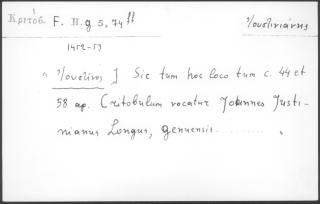 Κριτόβ. F. H. g 5, 74 ff
Ἰουστινιάνης
1452-53
" Ἰουστῖνος ] Sic tum hoc loco tum c. 44 et
58 ap. Critobulum vocatur Johannes Justi-
nianus Longus, genuensis .......... "